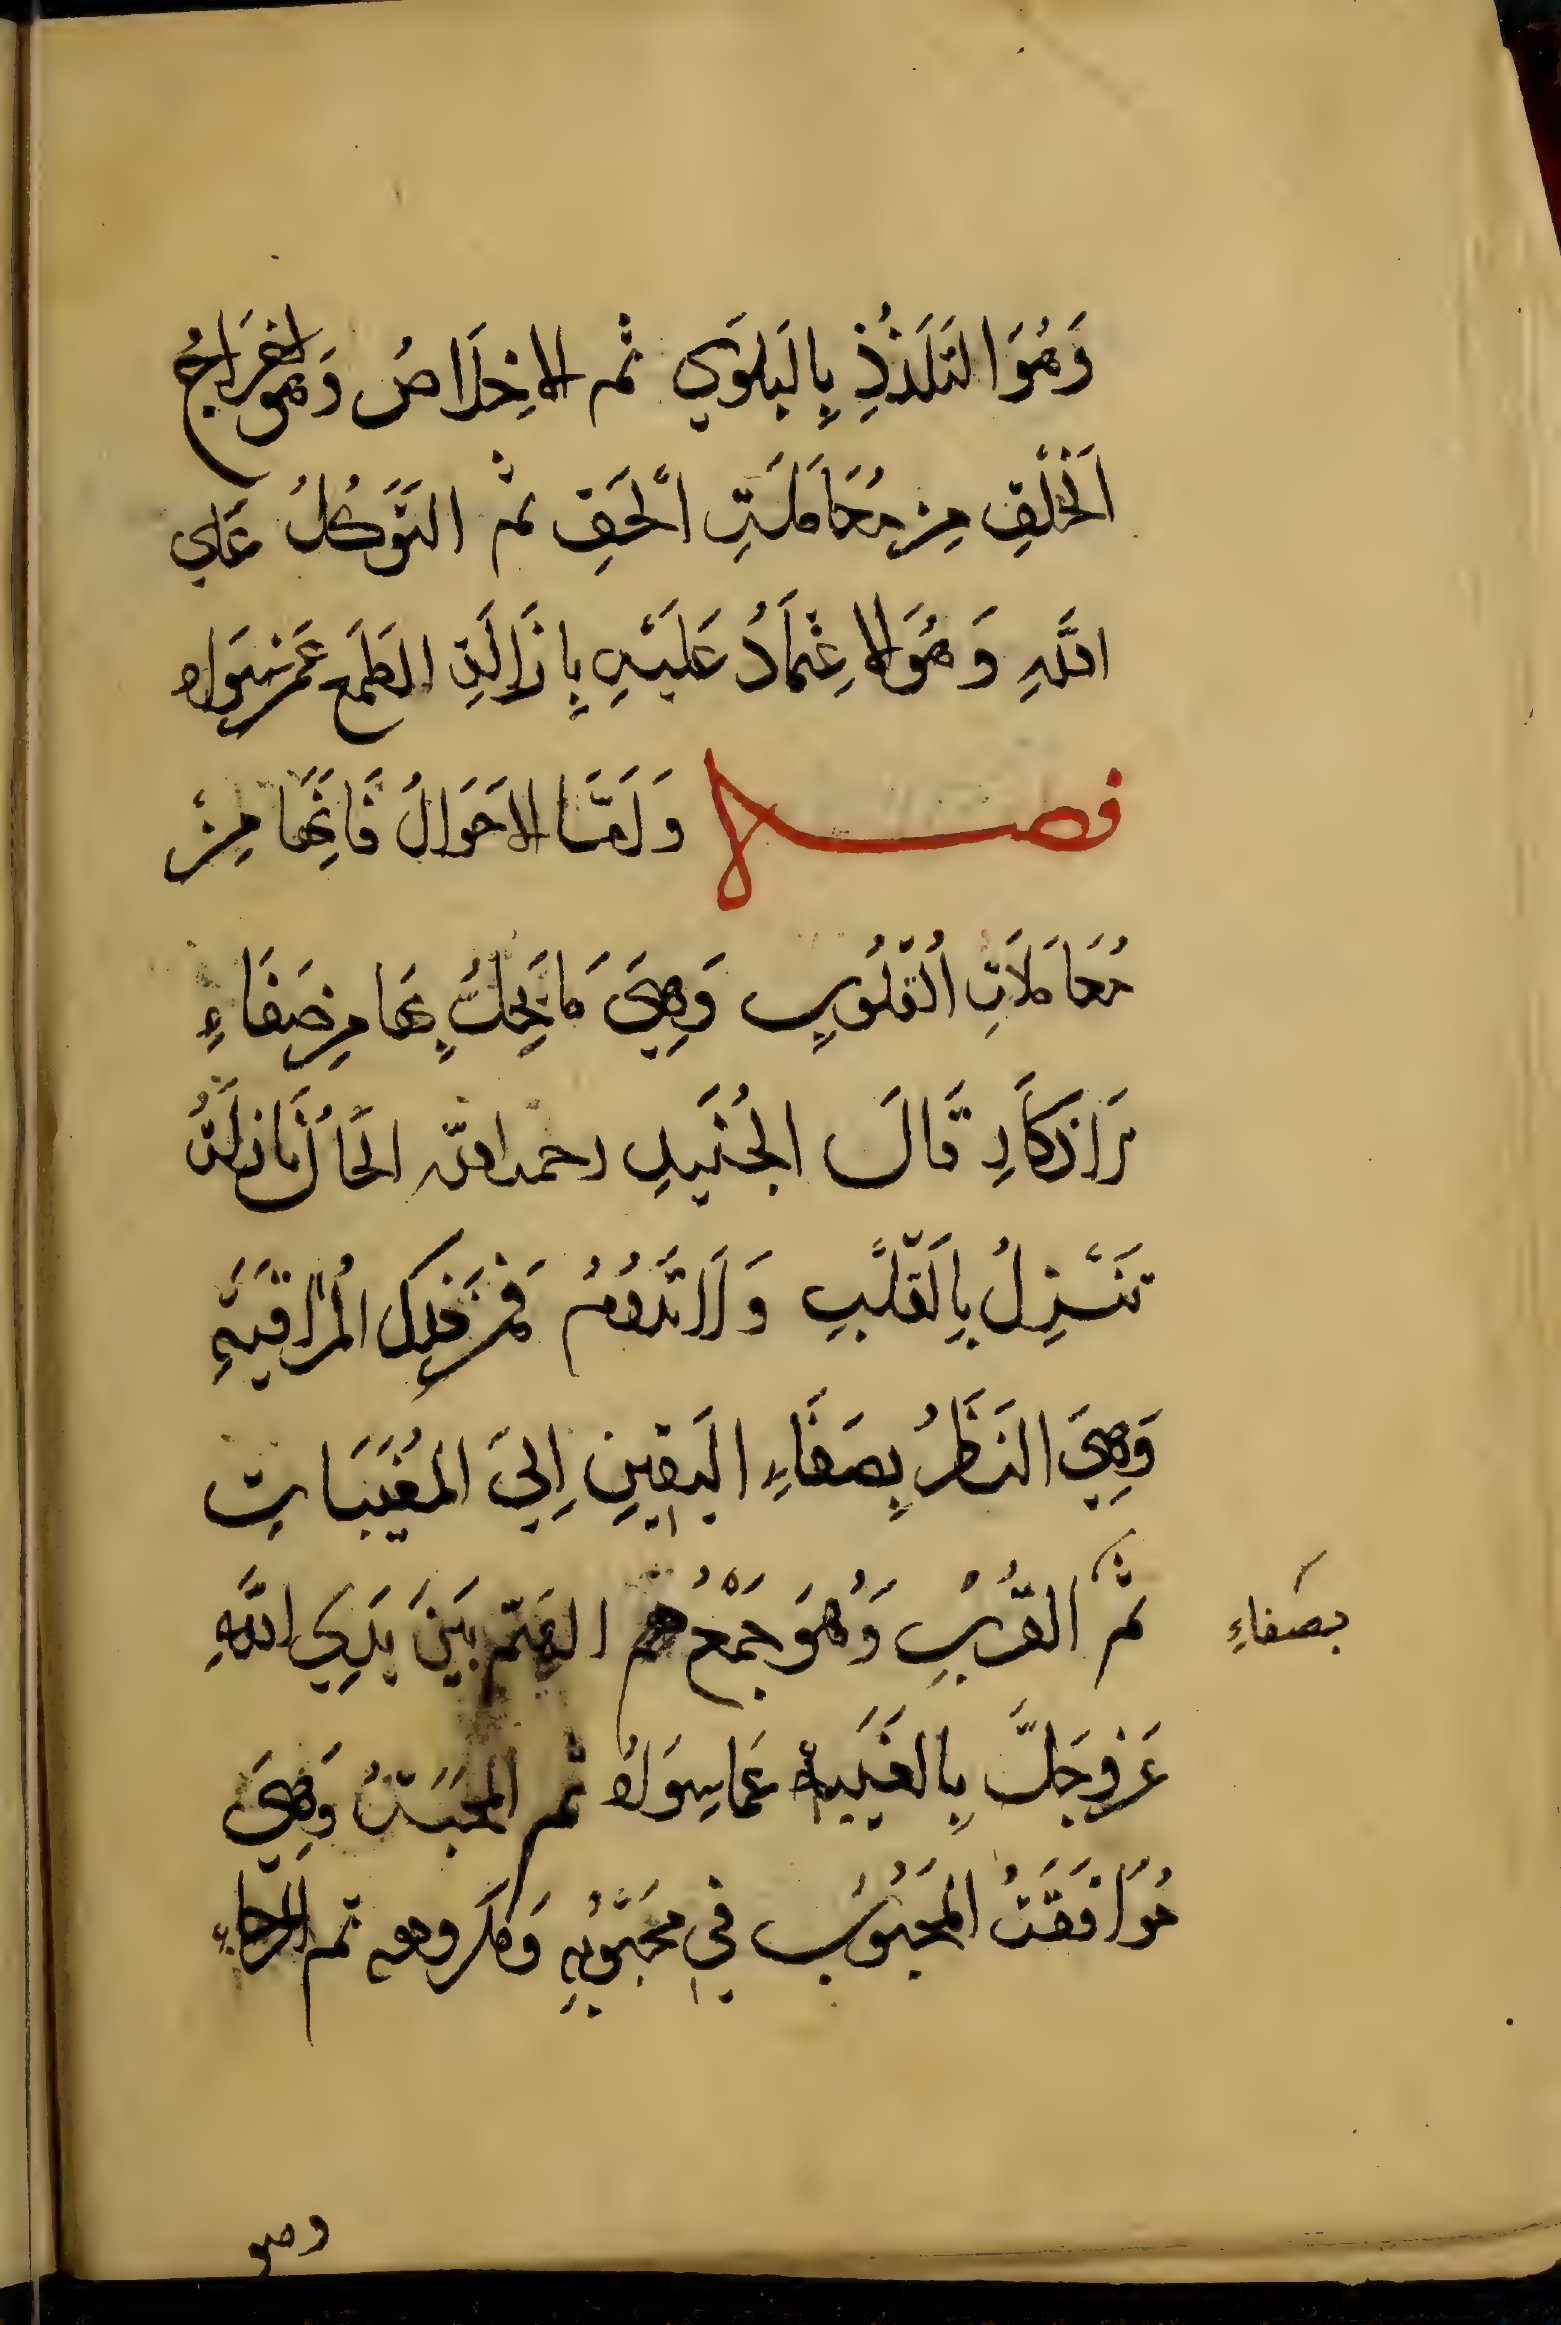 وَهُوَ التَلَذُذِ بِالبَلوَي ثم الاخِلَاصُ وَهو اخرَاجُ
اَلخَلْقِ مِن مُعَامَلَتِ اَلحَقِ ثم التَوَكُلُ عَلي
اللَّهِ وَهُوَ الاعِتمَادُ عَلَيْهِ بِازَالَةِ الطَمَعِ عَمن سِوَاه
فصل وَاَمَّا الاَحوَالُ فَانِهَا مِنْ
مُعَامَلاَتِ اُلقُلُوبِ وَهِيَ مَا يَحِلُ بِهَا مِن صَفَاءِ
الاَذكَارِ قَالَ الجُنَيدِ رحمه الله الحَالُ نَازِلَةُ
تَنْزِلُ بِالقَلْبِ وَلَا تَدُومُ فَمن ذَلِكَ اُلمُرَاقَبَةِ
وَهِيَ النَظَرُ بِصَفَاءِ اليَقِينِ اِلَيَ المُغَيَبَاتِ
ثُم القُرْبِ وَهُوَ جَمْعُ هم الهَمّ بَينَ يَدَيِ اللَّهِ
بصَفاءِ
عَز وجَلَّ بِالغَيَبة عَمَا سِوَاهُ ثم المَحَبَةُ وَهِيَ
مُوَافَقَةُ المَحبُوبُ فِي مَحبُوبِهِ وَمَكروهه ثم الرَّجَاءِ
وهو